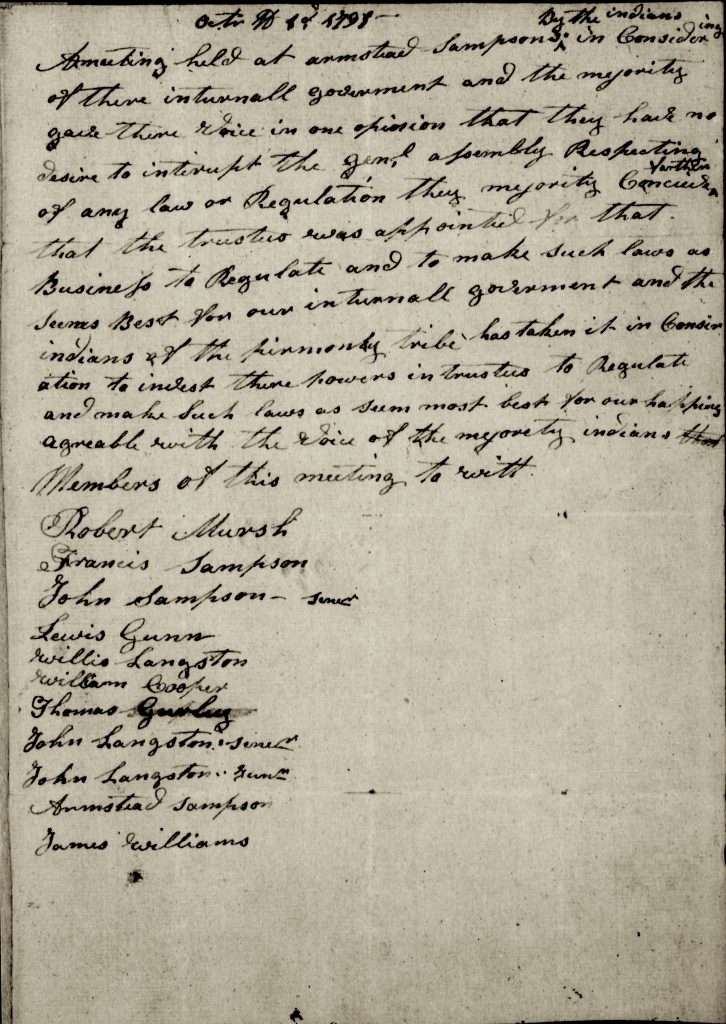 Octr 1798
By the indians
A meeting held at armstead Sampsons in Considering
of there internall goverment and the mejority
gave there voice in one opinion that they have no
desire to interupt the genl. assembly Respecting
of any law or Regulation they mejority Conclude farther
that the trustees was appointed for that
Business to Regulate and to make Such laws as
Seems Best for our internall goverment and the
indians of the tribe has taken it in Consider
ation to invest there powers in trustees to Regulate
and make Such laws as seem most best for our happing
agreable with the voice of the mejority indians
Members of this meeting to witt
Robert Mursh
Francis Sampson
John Sampson - sener
Lewis Gunn
Willis Langston
William Cooper
Thomas Gurley
John Langston sener
John Langston Junr
Armstead Sampson
James Williams